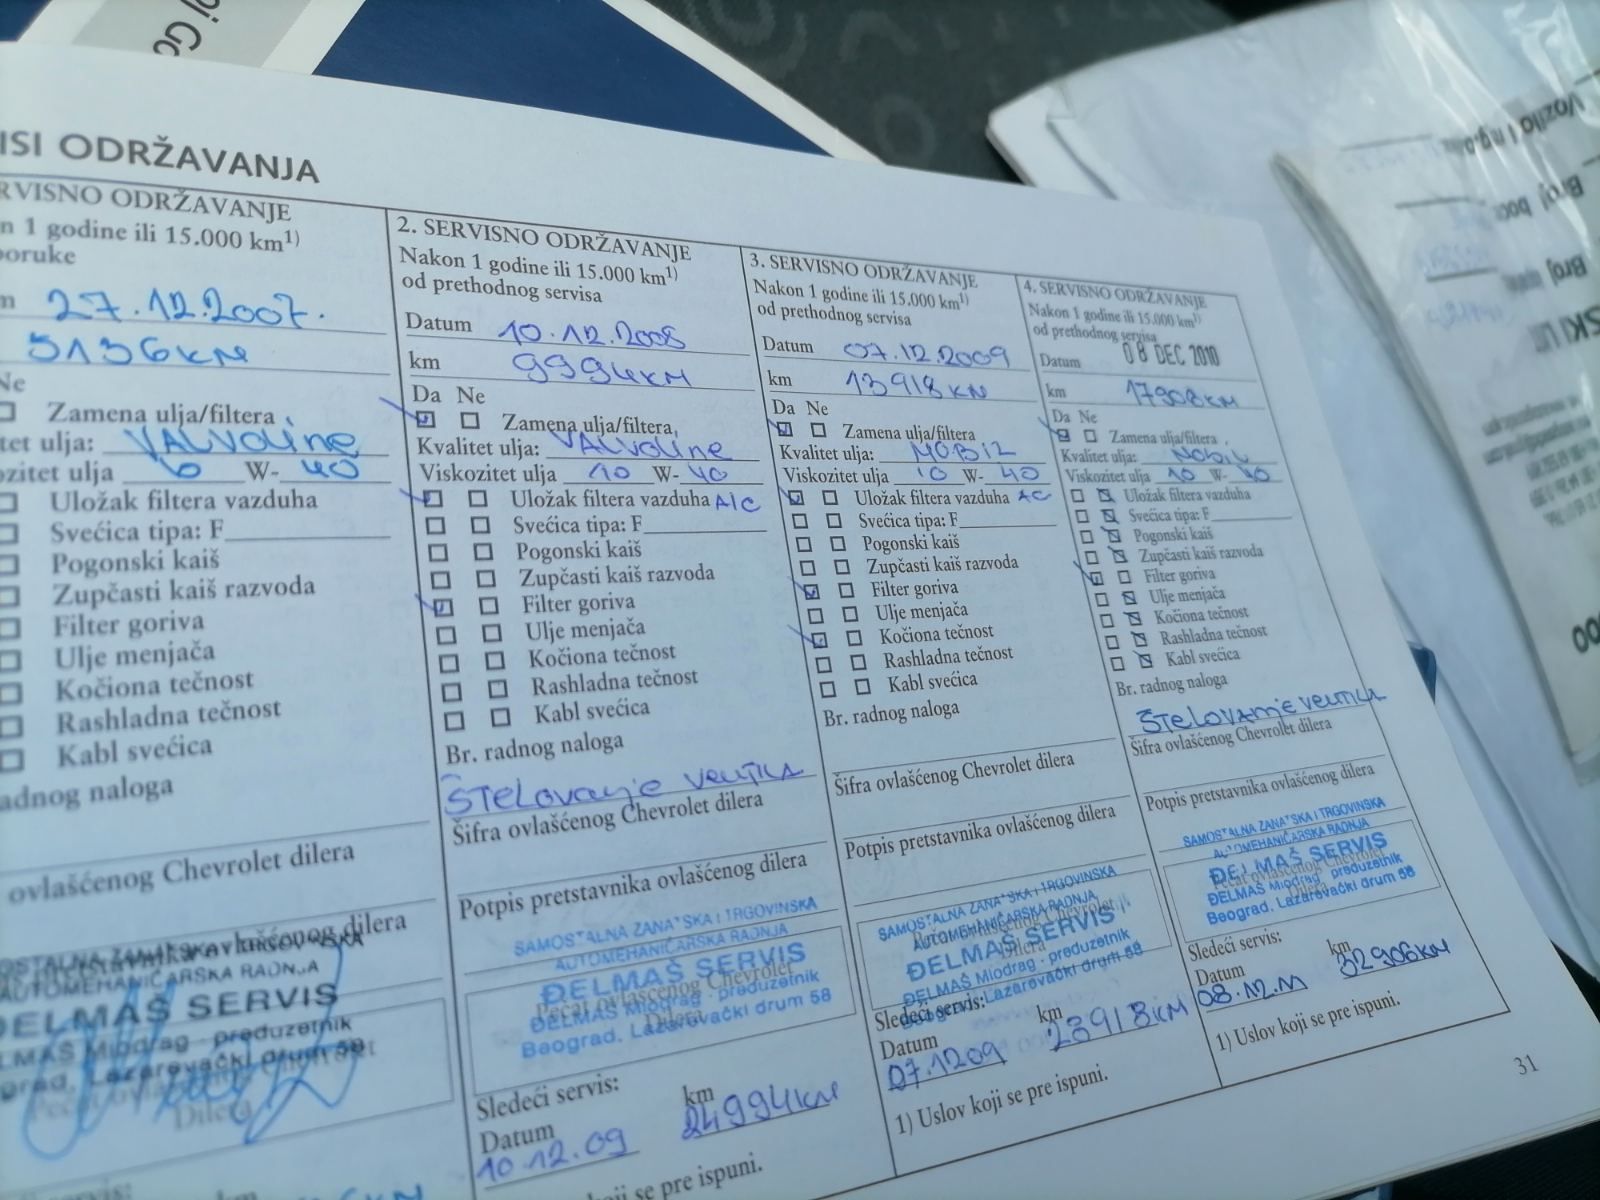 ISI ODRŽAVANJA
RVISNO ODRŽAVANJE
n 1 godine ili 15.000 km1)
poruke
m 27.12.2007.
5136KM
Ne
Zamena ulja/filtera
tet ulja: VALVOLINE
ozitet ulja 10 W- 40
Uložak filtera vazduha
Svećica tipa: F
Pogonski kaiš
Zupčasti kaiš razvoda
Filter goriva
Ulje menjača
Kočiona tečnost
Rashladna tečnost
Kabl svećica
adnog naloga
ovlašćenog Chevrolet dilera
AUTOMEHANIČARSKA RADNJA
ĐELMAŠ SERVIS
ELMAŠ Miodrag - preduzetnik
grad, Lazarevački drum 58
Dilera
servis: km
2. SERVISNO ODRŽAVANJE
Nakon 1 godine ili 15.000 km1)
od prethodnog servisa
Datum 10.12.2008
km 9994KM
Da Ne
Zamena ulja/filtera
Kvalitet ulja: VALVOLINE
Viskozitet ulja 10 W- 40
Uložak filtera vazduha A/C
Svećica tipa: F
Pogonski kaiš
Zupčasti kaiš razvoda
Filter goriva
Ulje menjača
Kočiona tečnost
Rashladna tečnost
Kabl svećica
Br. radnog naloga
ŠTELOVANJE VENTILA
Šifra ovlašćenog Chevrolet dilera
Potpis pretstavnika ovlašćenog dilera
SAMOSTALNA ZANATSKA I TRGOVINSKA
AUTOMEHANIČARSKA RADNJA
ĐELMAŠ SERVIS
Pečat ovlašćenog Chevrolet
ĐELMAŠ Miodrag - preduzetnik
Dilera
Beograd, Lazarevački drum 58
Sledeći servis:
Datum km
10.12.09 24994KM
koji se pre ispuni.
3. SERVISNO ODRŽAVANJE
Nakon 1 godine ili 15.000 km1)
od prethodnog servisa
Datum 07.12.2009
km 13918KM
Da Ne
Zamena ulja/filtera
Kvalitet ulja: MOBIL
Viskozitet ulja 10 W- 40
Uložak filtera vazduha AC
Svećica tipa: F
Pogonski kaiš
Zupčasti kaiš razvoda
Filter goriva
Ulje menjača
Kočiona tečnost
Rashladna tečnost
Kabl svećica
Br. radnog naloga
Šifra ovlašćenog Chevrolet dilera
Potpis pretstavnika ovlašćenog dilera
SAMOSTALNA ZANATSKA I TRGOVINSKA
AUTOMEHANIČARSKA RADNJA
ĐELMAŠ SERVIS
ĐELMAŠ Miodrag - preduzetnik
Lazarevački drum 58
Sledeći servis:
Datum km
07.1209 28918KM
1) Uslov koji se pre ispuni.
4. SERVISNO ODRŽAVANJE
Nakon 1 godine ili 15.000 km1)
od prethodnog servisa
Datum 08 DEC 2010
km 17908KM
Da Ne
Zamena ulja/filtera
Kvalitet ulja: MOBIL
Viskozitet ulja 10 W- 40
Uložak filtera vazduha
Svećica tipa: F
Pogonski kaiš
Zupčasti kaiš razvoda
Filter goriva
Ulje menjača
Kočiona tečnost
Rashladna tečnost
Kabl svećica
Br. radnog naloga
ŠTELOVANJE VENTILA
Šifra ovlašćenog Chevrolet dilera
Potpis pretstavnika ovlašćenog dilera
SAMOSTALNA ZANATSKA I TRGOVINSKA
AUTOMEHANIČARSKA RADNJA
ĐELMAŠ SERVIS
Pečat ovlašćenog Chevrolet
ĐELMAŠ Miodrag - preduzetnik
Dilera
Beograd, Lazarevački drum 58
Sledeći servis:
Datum km
08.12.11 32906KM
1) Uslov koji se pre ispuni.
31
Broj
Broj